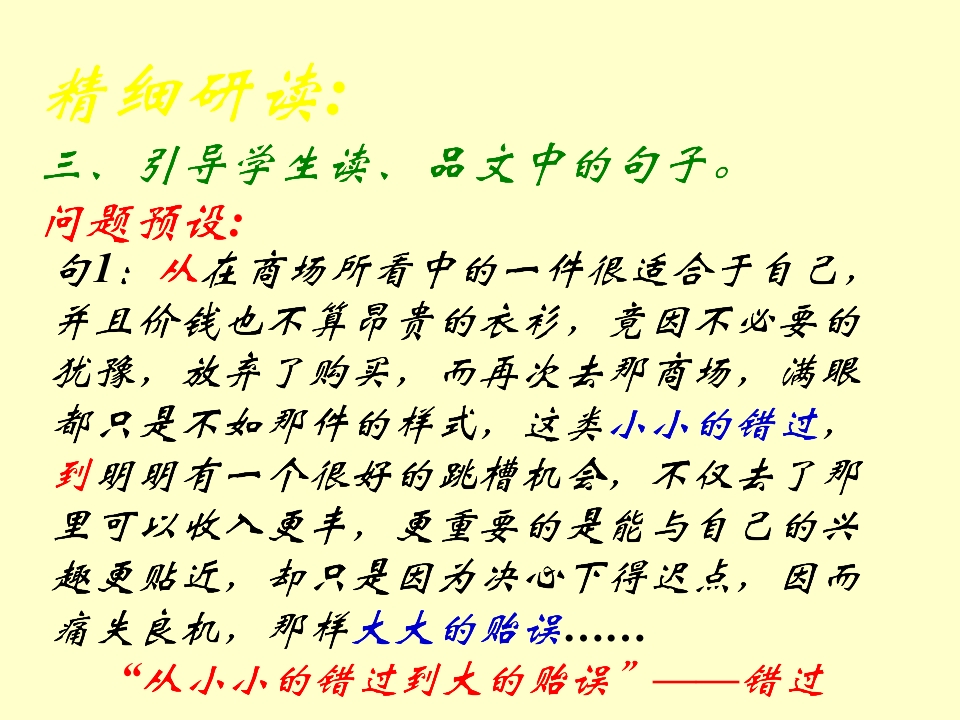 精细研读:
三、引导学生读、品文中的句子。
问题预设:
句1：从在商场所看中的一件很适合于自己，
并且价钱也不算昂贵的衣衫，竟因不必要的
犹豫，放弃了购买，而再次去那商场，满眼
都只是不如那件的样式，这类小小的错过，
到明明有一个很好的跳槽机会，不仅去了那
里可以收入更丰，更重要的是能与自己的兴
趣更贴近，却只是因为决心下得迟点，因而
痛失良机，那样大大的贻误……
“从小小的错过到大的贻误”——错过